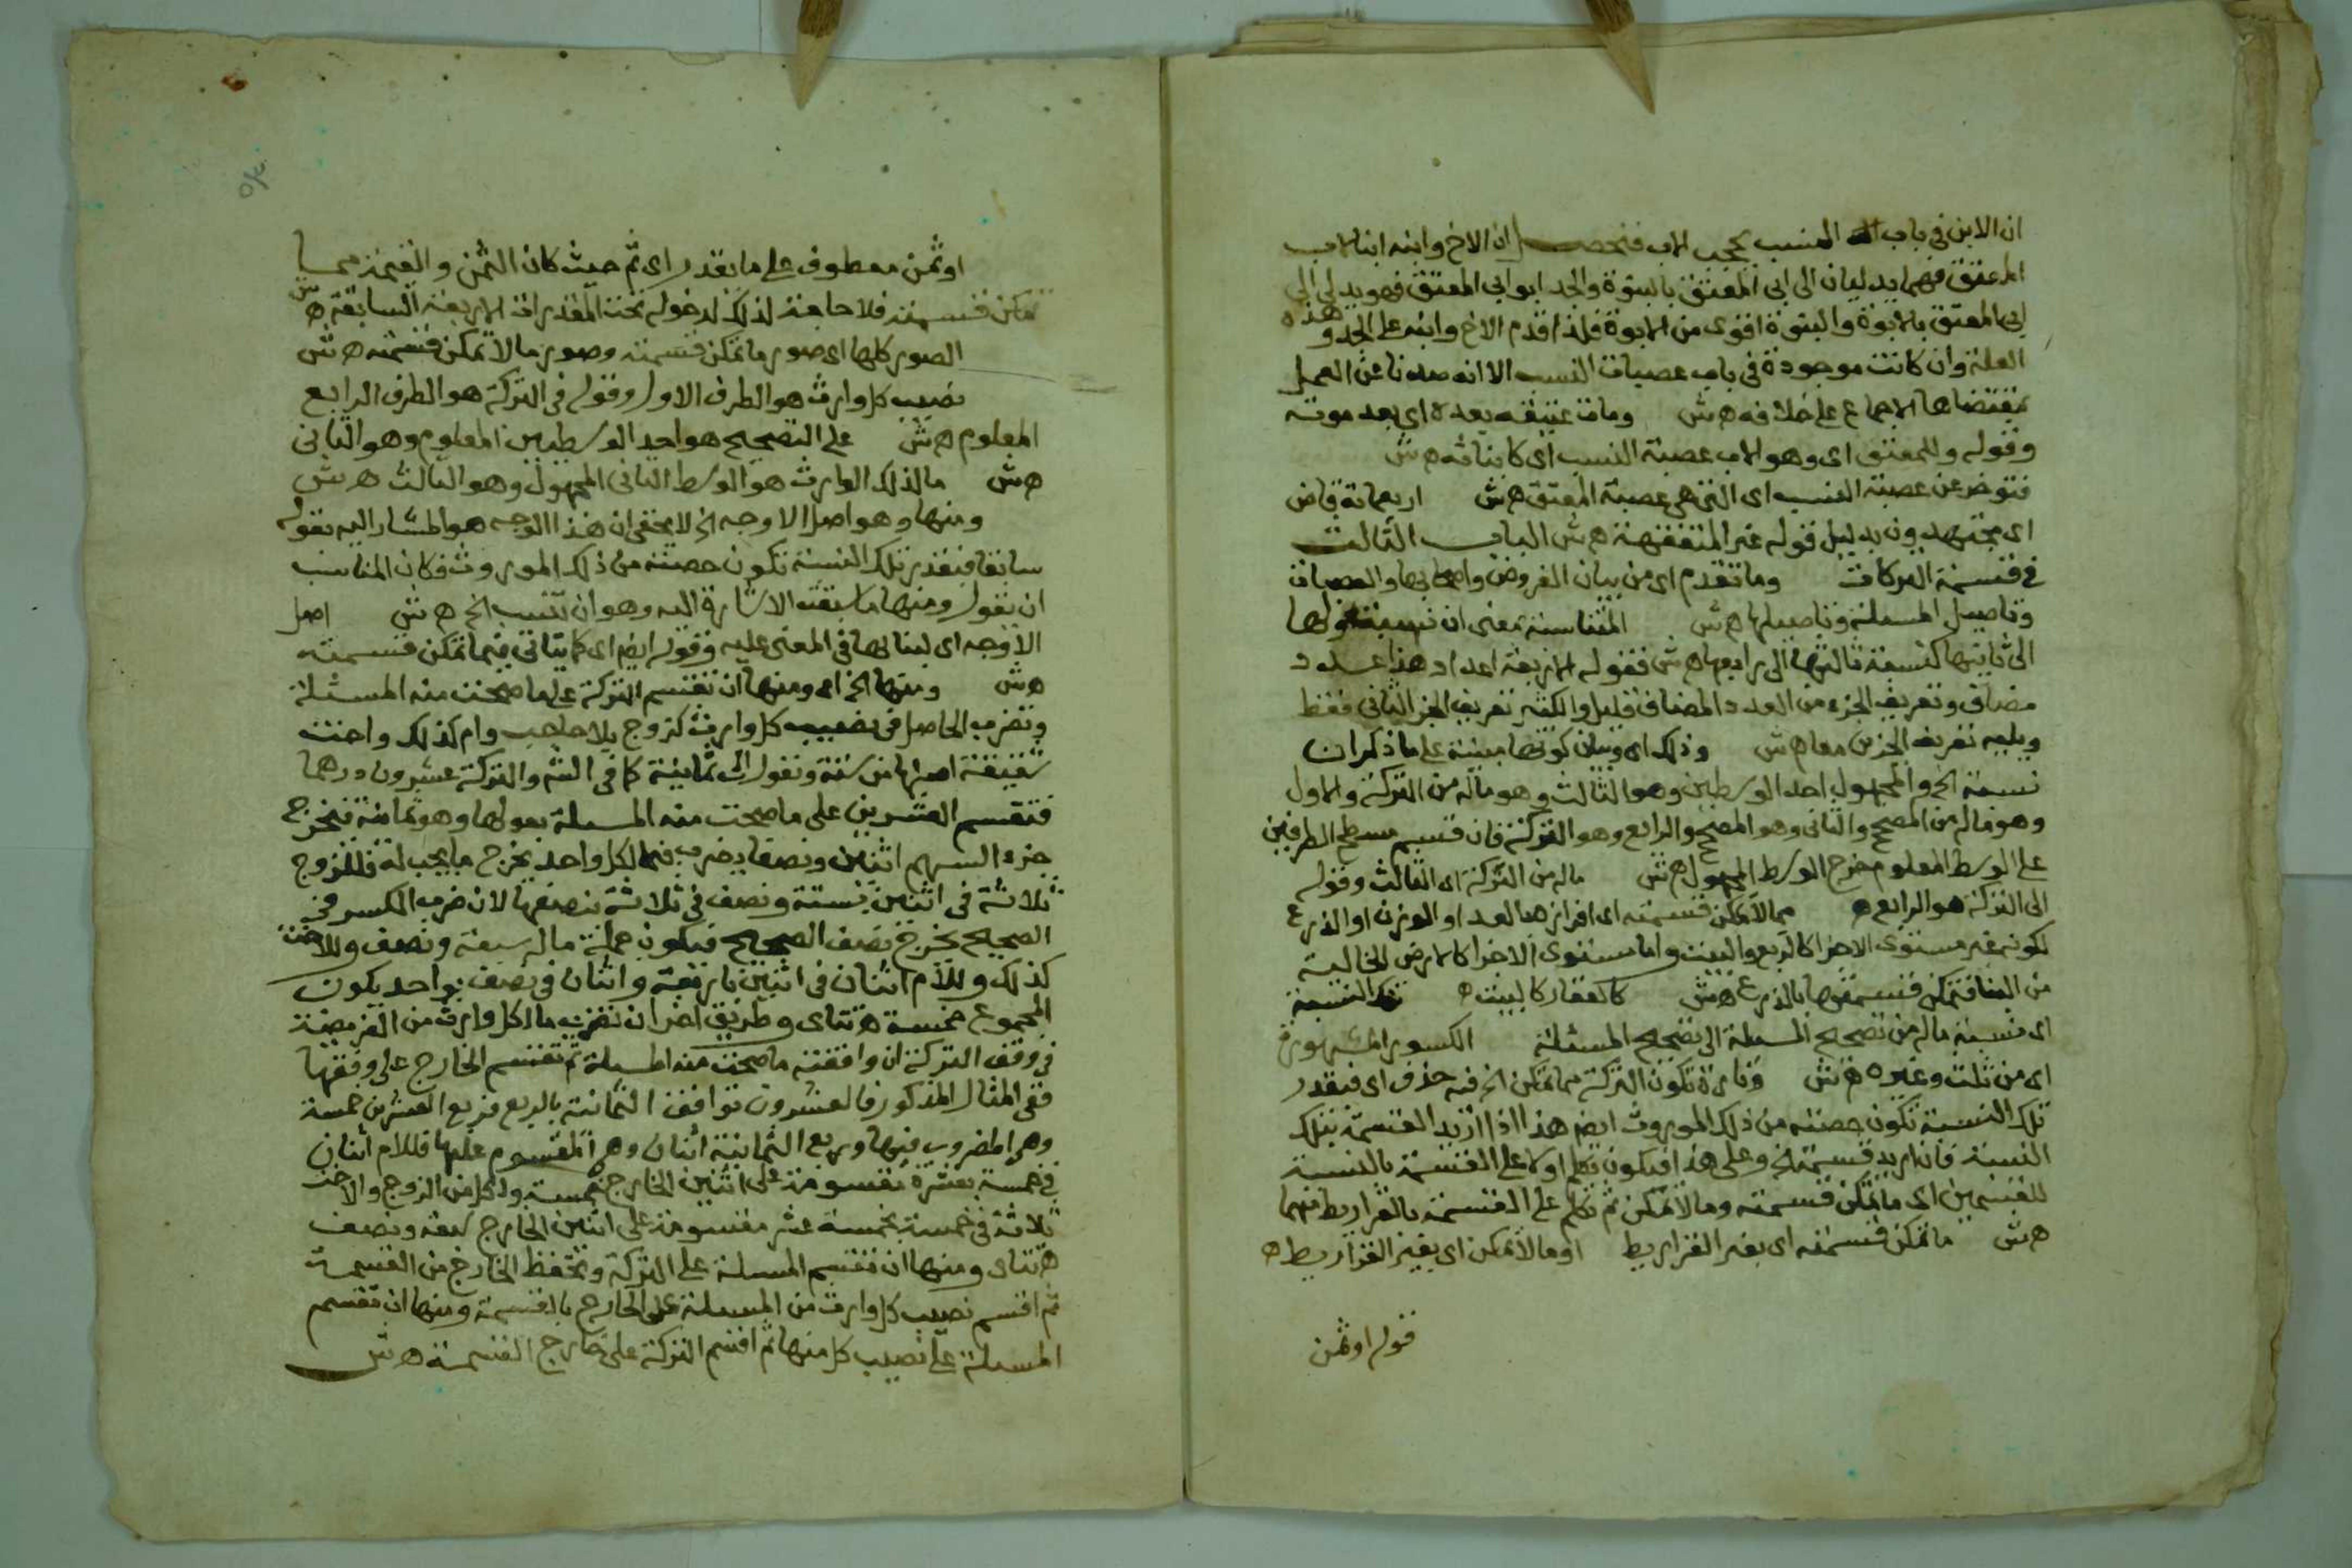 ان الابن في باب النسب يحجب الاب فتحصل ان الاخ وابنه ابنا لاب
المعتق فهما يدليان الى ابي المعتق بالبنوة والجد ابو ابي المعتق فهو يدلي الى
ابي المعتق بالابوة والبنوة اقوى من الابوة فلذا قدم الاخ وابنه على الجد وهذه
العلة وان كانت موجودة في باب عصبات النسب الا انه صدنا عن العمل
بمقتضاها الاجماع على خلافه ه ش ومات عتيقه بعده اي بعد موته
وقوله وللمعتق اي وهو الاب عصبة النسب اي كابنائه ه ش
فتوخر عن عصبة النسب اي التي هي عصبة المعتق ه ش اربعماية قاض
اي مجتهدون بدليل قوله غير المتفقهة ه ش الباب الثالث
في قسمة التركات وما تقدم اي من بيان الفروض واصحابها والعصبات
وتاصيل المسئلة وتاصيلها ه ش المتناسبة بمعنى ان نسبة اولها
الى ثانيها كنسبة ثالثها الى رابعها ه ش فقوله الاربعة اعداد هذا عدد
مضاف وتعريف الجزء من العدد المضاف قليل والكثير تعريف الجز الثاني فقط
ويليه تعريف الجزين معا ه ش وذلك اي وبيان كونها مبينة على ما ذكر ان
نسبة الخ والمجهول احد الوسطين وهو الثالث وهو ماله من التركة والاول
وهو ماله من المصحح والثاني وهو المصحح والرابع وهو التركة فان قسم مسطح الطرفين
على الوسط المعلوم خرج الوسط المجهول ه ش ماله من التركة اي الثالث وقوله
الى التركة هو الرابع ه مما لا يمكن قسمته اي افرازها بالعد او الوزن او الذرع
لكونه غير مستوى الاجزا كالربع والبيت واما مستوى الاجزا كالارض الخالية
من البنا فتمكن قسمتها بالذرع ه ش كالعقار كالبيت ه تلك النسبة
اي نسبة ماله من تصحيح المسئلة الى تصحيح المسئلة الكسور المشهورة
اي من ثلث وغيره ه ش وتارة تكون التركة مما تمكن الخ فيه حذف اي فبقدر
تلك النسبة تكون حصته من ذلك الموروث ايضا هذا اذا اريد القسمة بتلك
النسبة فان اريد قسمته الخ وعلى هذا فيكون تكلم اولا على القسمة بالنسبة
للقسمين اي ما تمكن قسمته وما لا تمكن ثم تكلم على القسمة بالقراريط فيهما
ه ش ما تمكن قسمته اي بغير القراريط او ما لا تمكن اي بغير القراريط ه
قوله او ثمن
او ثمن معطوف على ما بقدر اي ثم حيث كان الثمن والقيمة مما
تمكن قسمته فلا حاجة لذلك لدخوله تحت المقدرات الاربعة السابقة ه ش
الصور كلها اي صور ما تمكن قسمته وصور ما لا تمكن قسمته ه ش
نصيب كل وارث هو الطرف الاول وقوله في التركة هو الطرف الرابع
المعلوم ه ش على التصحيح هو احد الوسطين المعلوم وهو الثاني
ه ش ما لذلك الوارث هو الوسط الثاني المجهول وهو الثالث ه ش
ومنها وهو اصل الاوجه الخ لا يخفى ان هذا الوجه هو المشار اليه بقوله
سابقا فبقدر تلك النسبة تكون حصته من ذلك الموروث فكان المناسب
ان يقول ومنها ما سبقت الاشارة اليه وهو ان تنسب الخ ه ش اصل
الاوجه اي لبنائها في المعنى عليه وقوله ايضا اي كما ياتي فيما تمكن قسمته
ه ش ومنها الخ اي ومنها ان تقسم التركة على ما صحت منه المسئلة
وتضرب الحاصل في نصيب كل وارث كزوج بلا حاجب وام كذلك واخت
شقيقة اصلها من ستة وتعول الى ثمانية كما في الش والتركة عشرون درهما
فتقسم العشرين على ما صحت منه المسئلة بعولها وهو ثمانية فتخرج
جزء السهم اثنين ونصفا يضرب فيما لكل واحد يخرج ما يجب له فللزوج
ثلاثة في اثنين بستة ونصف في ثلاثة بنصفها لان ضرب الكسر في
الصحيح يخرج نصف الصحيح فيكون جملة ماله سبعة ونصف وللاخت
كذلك وللام اثنان في اثنين باربعة واثنان في نصف بواحد يكون
المجموع خمسة ه تتاي وطريق اخر ان تضرب ما لكل وارث من الفريضة
في وفق التركة ان وافقته ما صحت منه المسئلة ثم تقسم الخارج على وفقها
ففي المثال المذكور فالعشرون توافق الثمانية بالربع فربع العشرين خمسة
وهي المضروب فيها وربع الثمانية اثنان وهو المقسوم عليها فللام اثنان
في خمسة بعشرة مقسومة على اثنين الخارج خمسة ولكل من الزوج والاخت
ثلاثة في خمسة بخمسة عشر مقسومة على اثنين الخارج سبعة ونصف
ه تتاي ومنها ان تقسم المسئلة على التركة وتحفظ الخارج من القسمة
ثم اقسم نصيب كل وارث من المسئلة على الخارج بالقسمة ومنها ان تقسم
المسئلة على نصيب كل منها ثم اقسم التركة على خارج القسمة ه ش